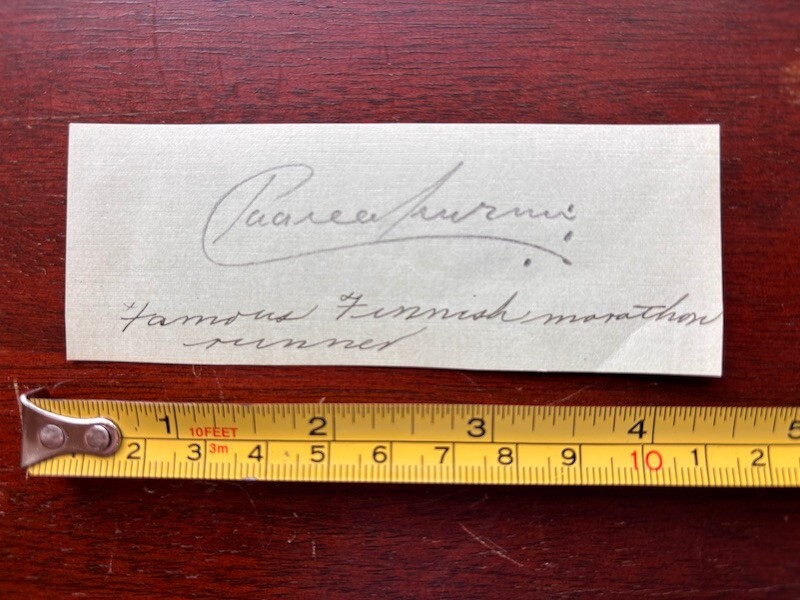 Paavo Nurmi
Famous Finnish marathon
runner
1 2 3 4 5
10FEET
3m
2 3 4 5 6 7 8 9 10 1 2